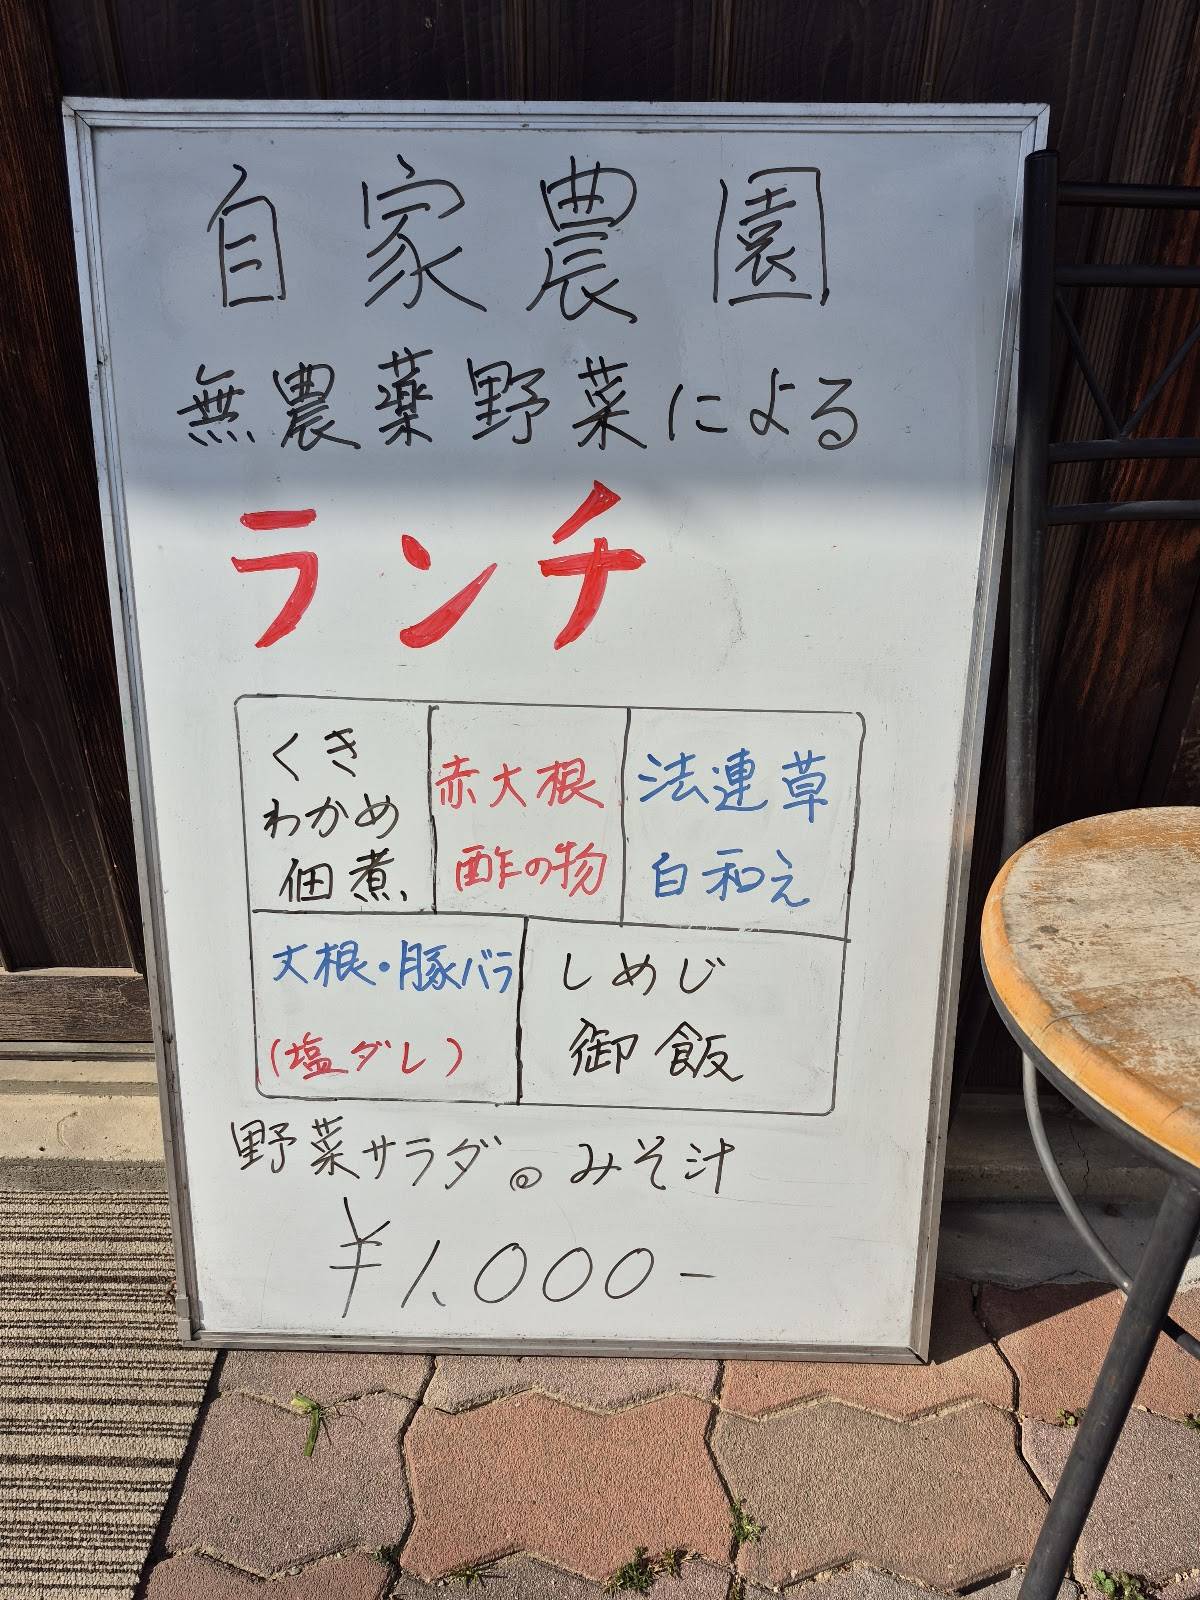 自家農園
無農薬野菜による
ランチ
くき
わかめ
佃煮
赤大根
酢の物
法連草
白和え
大根・豚バラ
(塩ダレ)
しめじ
御飯
野菜サラダ。みそ汁
¥1,000-